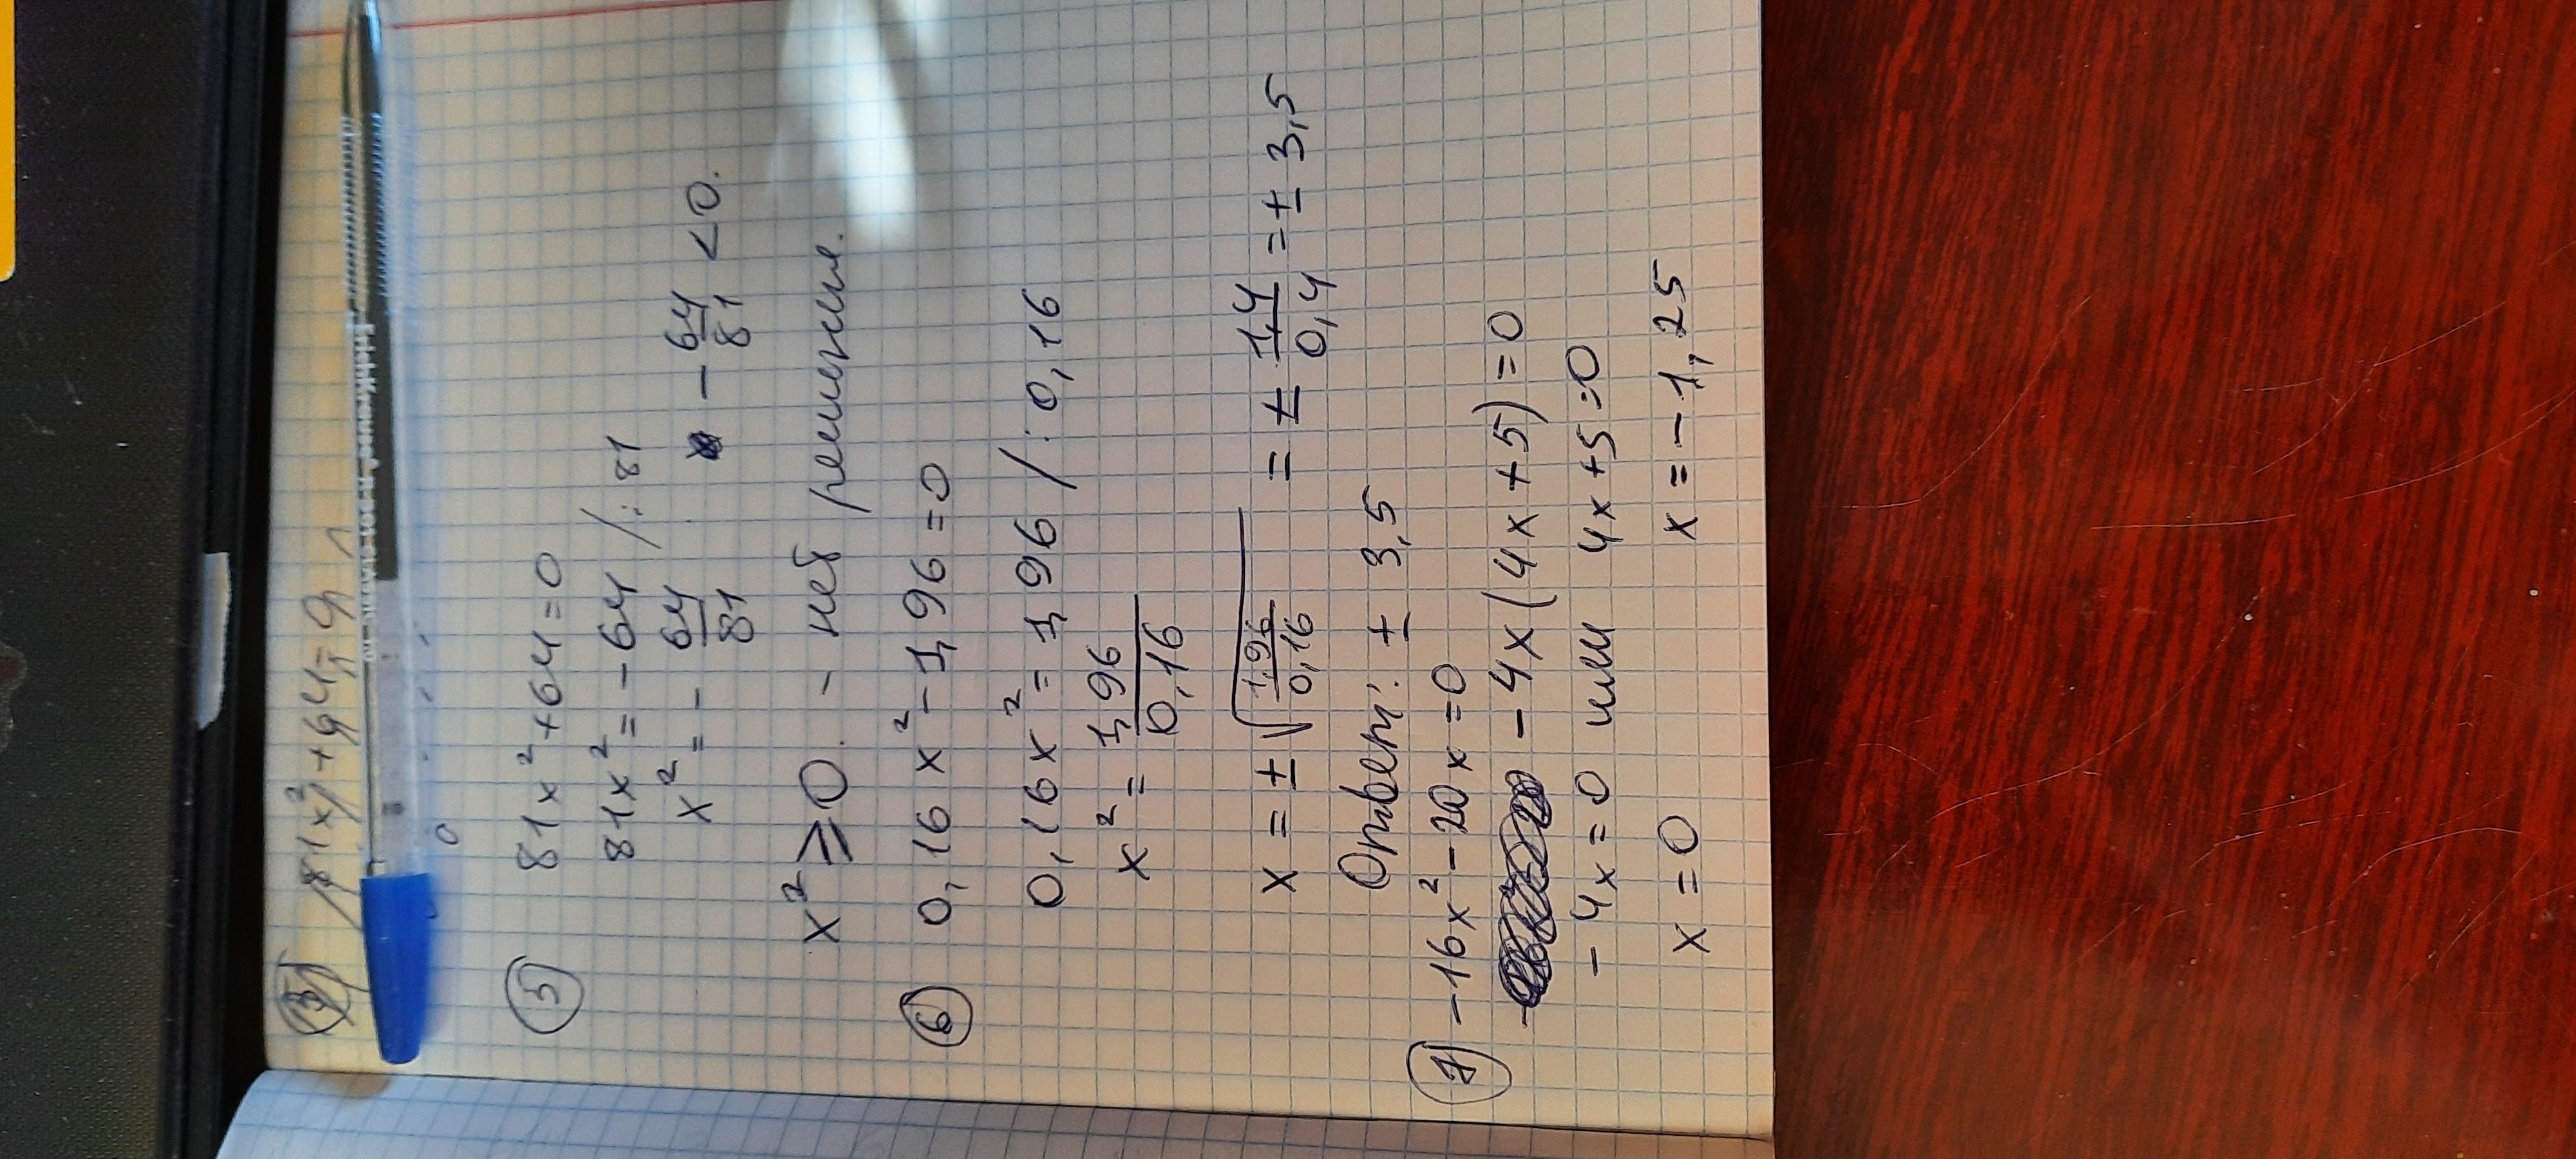 ③ 81x² + 64 =
⑤ 81x² + 64 = 0
81x² = -64 /:81
x² = - 64/81   - 64/81 < 0.
x² ⩾ 0. - нет решения.
⑥ 0,16x² - 1,96 = 0
0,16x² = 1,96 /:0,16
x² = 1,96/0,16
x = ± √(1,96/0,16) = ± 1,4/0,4 = ± 3,5
Ответ: ± 3,5
⑦ -16x² - 20x = 0
-4x(4x+5) = 0
-4x = 0 или 4x+5=0
x = 0   x = -1,25